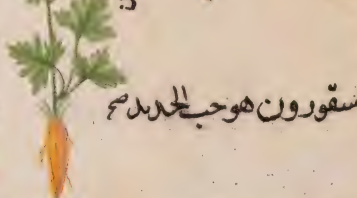 سقورون هو حب الحديد صح